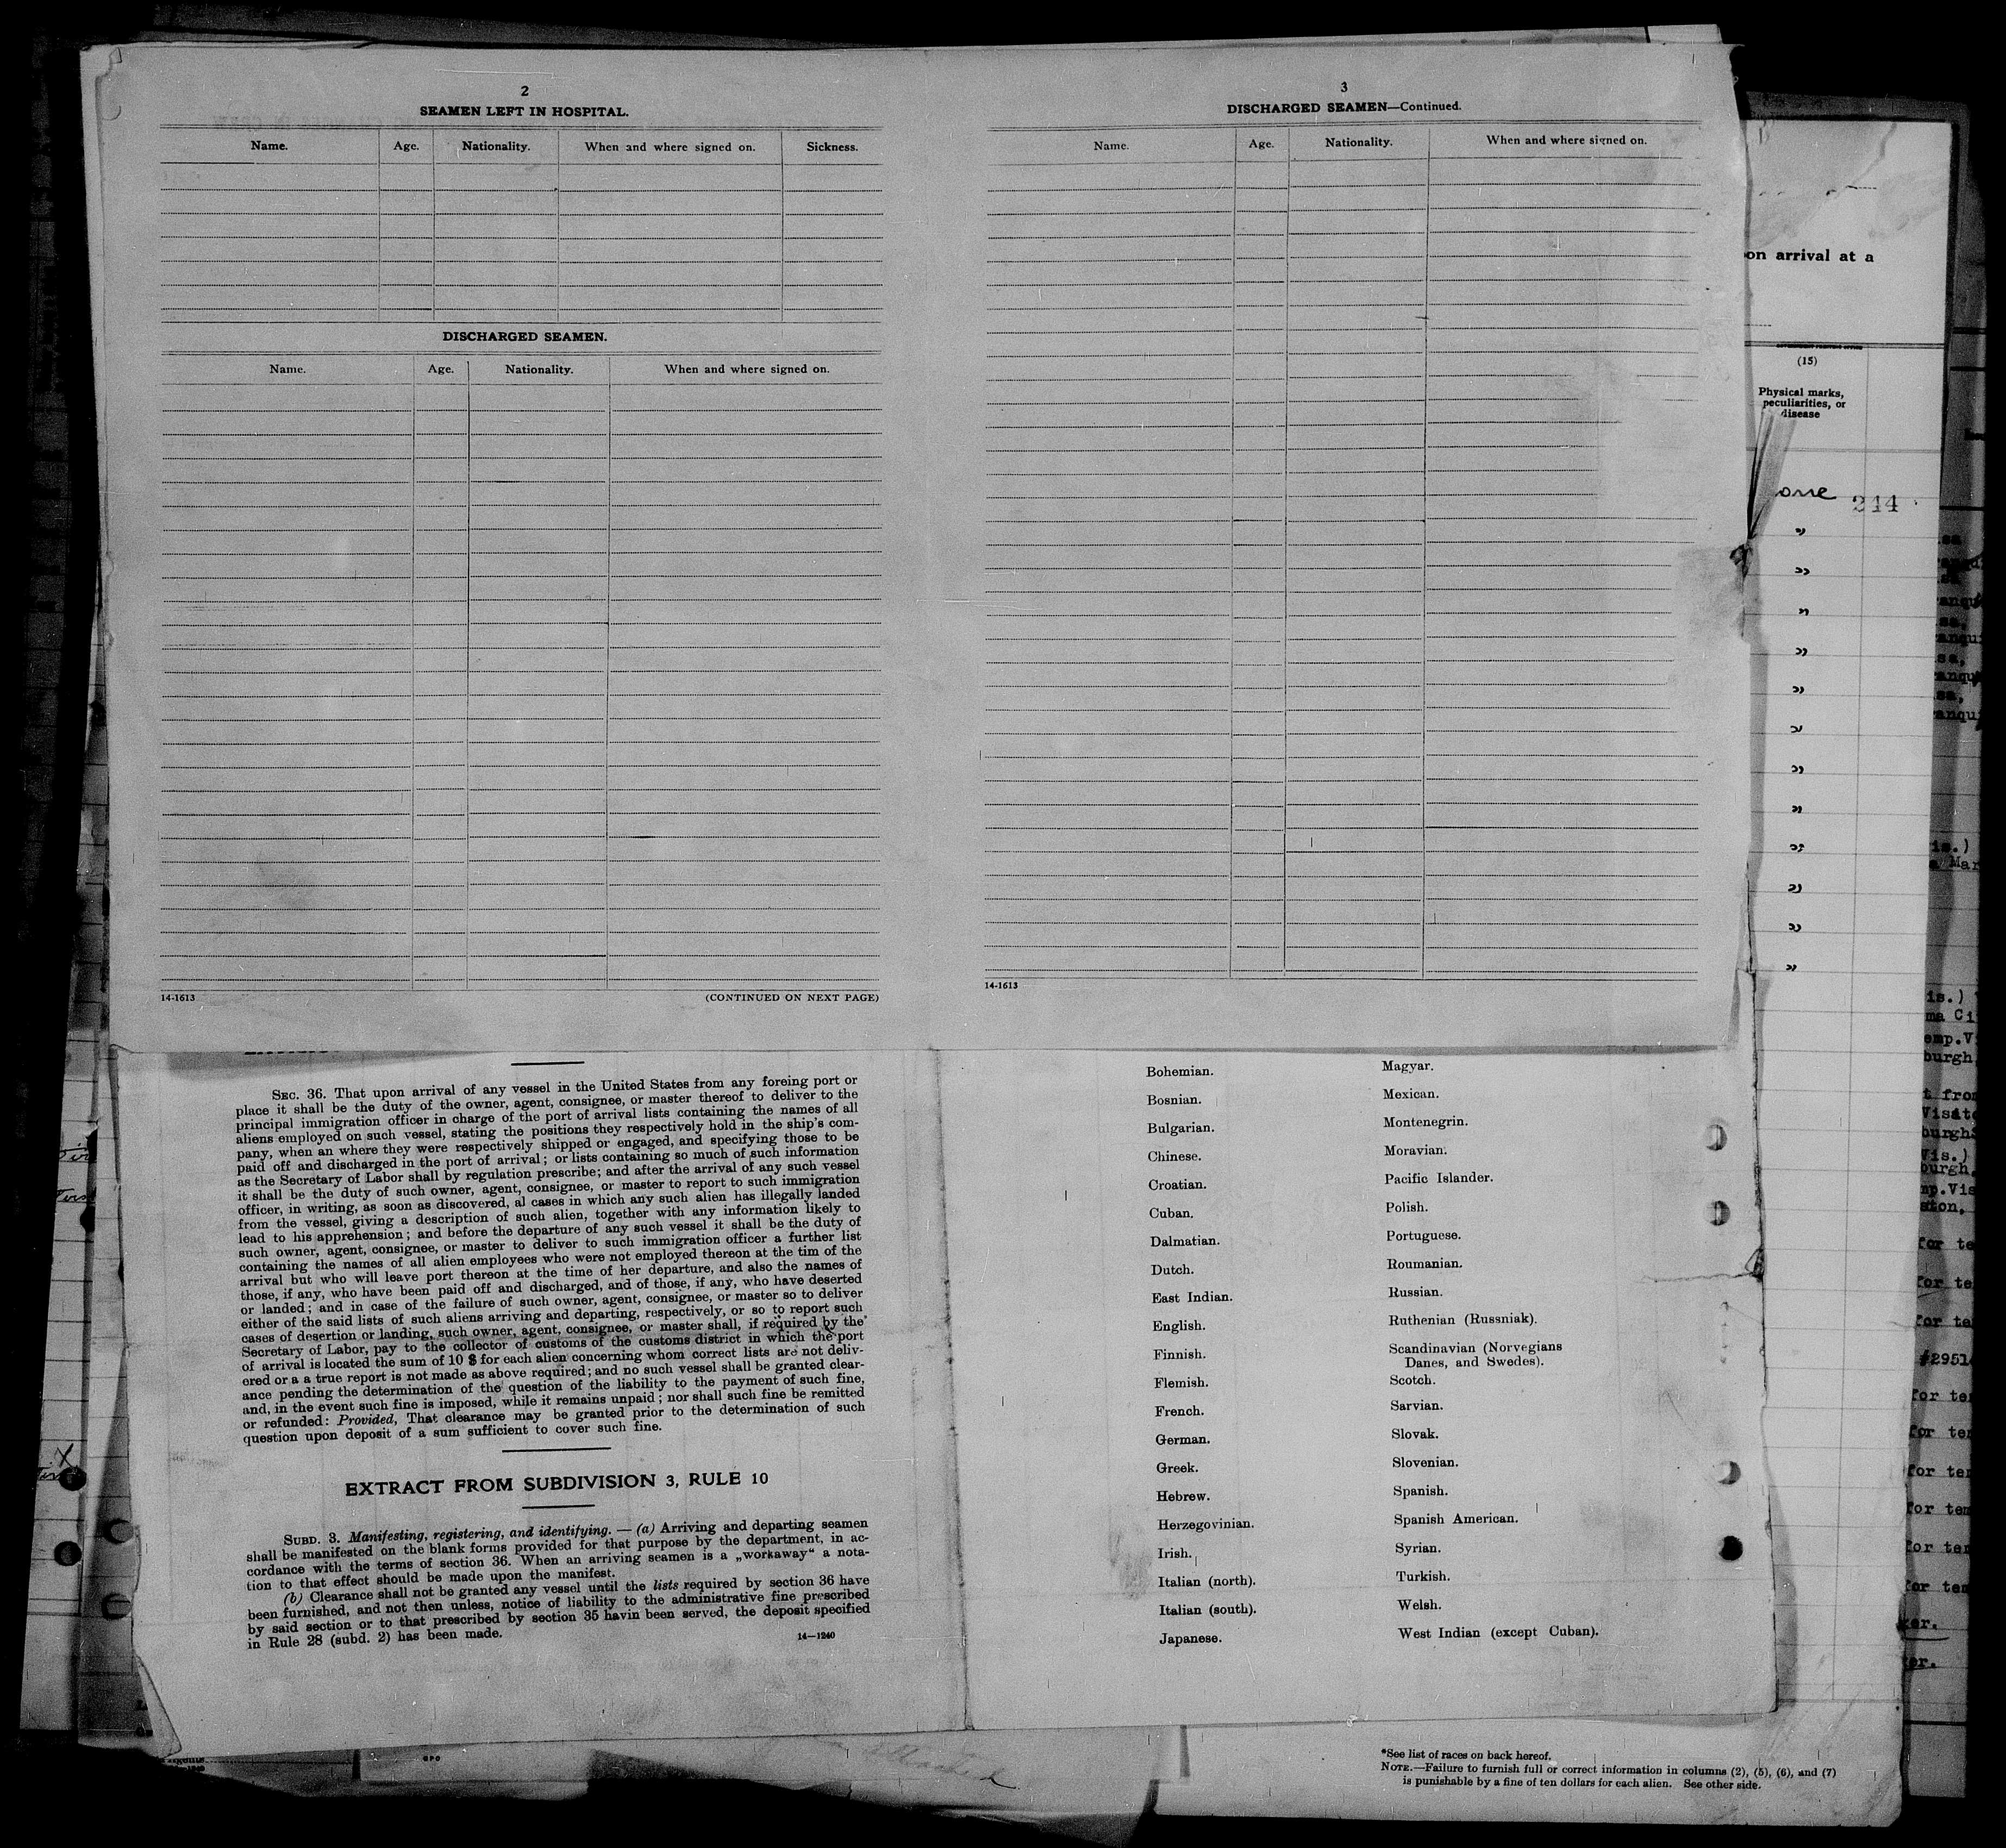 2
SEAMEN LEFT IN HOSPITAL.
Name. Age. Nationality. When and where signed on. Sickness.
DISCHARGED SEAMEN.
Name. Age. Nationality. When and where signed on.
14-1613 (CONTINUED ON NEXT PAGE)
3
DISCHARGED SEAMEN—Continued.
Name. Age. Nationality. When and where signed on.
14-1613
on arrival at a
(15)
Physical marks,
peculiarities, or
disease
one 244
"
"
"
"
"
"
"
"
"
"
"
"
SEC. 36. That upon arrival of any vessel in the United States from any foreing port or
place it shall be the duty of the owner, agent, consignee, or master thereof to deliver to the
principal immigration officer in charge of the port of arrival lists containing the names of all
aliens employed on such vessel, stating the positions they respectively hold in the ship's com-
pany, when an where they were respectively shipped or engaged, and specifying those to be
paid off and discharged in the port of arrival; or lists containing so much of such information
as the Secretary of Labor shall by regulation prescribe; and after the arrival of any such vessel
it shall be the duty of such owner, agent, consignee, or master to report to such immigration
officer, in writing, as soon as discovered, al cases in which any such alien has illegally landed
from the vessel, giving a description of such alien, together with any information likely to
lead to his apprehension; and before the departure of any such vessel it shall be the duty of
such owner, agent, consignee, or master to deliver to such immigration officer a further list
containing the names of all alien employees who were not employed thereon at the tim of the
arrival but who will leave port thereon at the time of her departure, and also the names of
those, if any, who have been paid off and discharged, and of those, if any, who have deserted
or landed; and in case of the failure of such owner, agent, consignee, or master so to deliver
either of the said lists of such aliens arriving and departing, respectively, or so to report such
cases of desertion or landing, such owner, agent, consignee, or master shall, if required by the
Secretary of Labor, pay to the collector of customs of the customs district in which the port
of arrival is located the sum of 10 $ for each alien concerning whom correct lists are not deliv-
ered or a a true report is not made as above required; and no such vessel shall be granted clear-
ance pending the determination of the question of the liability to the payment of such fine,
and, in the event such fine is imposed, while it remains unpaid; nor shall such fine be remitted
or refunded: Provided, That clearance may be granted prior to the determination of such
question upon deposit of a sum sufficient to cover such fine.
EXTRACT FROM SUBDIVISION 3, RULE 10
SUBD. 3. Manifesting, registering, and identifying. — (a) Arriving and departing seamen
shall be manifested on the blank forms provided for that purpose by the department, in ac-
cordance with the terms of section 36. When an arriving seamen is a „workaway“ a nota-
tion to that effect should be made upon the manifest.
(b) Clearance shall not be granted any vessel until the lists required by section 36 have
been furnished, and not then unless, notice of liability to the administrative fine prescribed
by said section or to that prescribed by section 35 havin been served, the deposit specified
in Rule 28 (subd. 2) has been made.
14—1240
Bohemian.
Bosnian.
Bulgarian.
Chinese.
Croatian.
Cuban.
Dalmatian.
Dutch.
East Indian.
English.
Finnish.
Flemish.
French.
German.
Greek.
Hebrew.
Herzegovinian.
Irish.
Italian (north).
Italian (south).
Japanese.
Magyar.
Mexican.
Montenegrin.
Moravian.
Pacific Islander.
Polish.
Portuguese.
Roumanian.
Russian.
Ruthenian (Russniak).
Scandinavian (Norvegians
Danes, and Swedes).
Scotch.
Sarvian.
Slovak.
Slovenian.
Spanish.
Spanish American.
Syrian.
Turkish.
Welsh.
West Indian (except Cuban).
*See list of races on back hereof.
NOTE.—Failure to furnish full or correct information in columns (2), (5), (6), and (7)
is punishable by a fine of ten dollars for each alien. See other side.